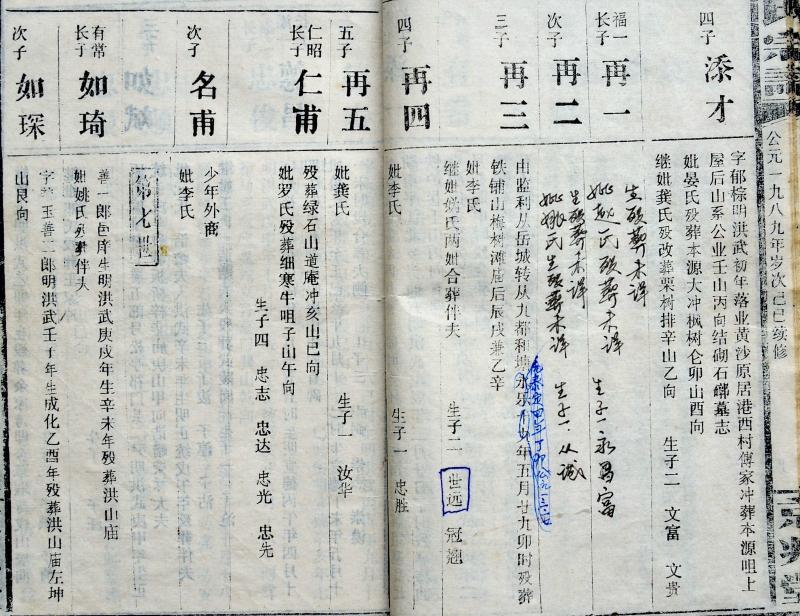 公元一九八九年岁次己巳续修
四子
添才
字郁棕明洪武初年落业黄沙原居港西村傅家冲葬本源咀上
屋后山系公业壬山丙向结砌石嶂墓志
妣晏氏殁葬本源大冲枫树仑卯山酉向
继妣龚氏殁改葬栗树排辛山乙向
生子二 文富 文贵
福一
长子
再一
生殁葬未详
妣赵氏殁葬未详
生子一永昌富
次子
再二
生殁葬未详
妣姚氏生殁葬未详
生子一从诚
三子
再三
由监利从岳城转从九都和塘永乐十
年五月廿九卯时殁葬
铁铺山梅树滩庙后辰戌兼乙辛
妣李氏
继妣 氏两妣合葬伴夫
生子二 世远 冠翘
四子
再四
妣李氏
生子一 忠胜
五子
再五
妣龚氏
生子一 汝华
仁昭
长子
仁甫
殁葬绿石山道庵冲亥山巳向
妣罗氏殁葬细寒牛咀子山午向
生子四 忠志 忠达 忠光 忠先
次子
名甫
少年外商
妣李氏
第才世
有常
长子
如琦
善一郎邑庠生明洪武庚戌年生辛未年殁葬洪山庙
妣姚氏殁葬伴夫
次子
如琛
字 玉善二郎明洪武壬子年生成化乙酉年殁葬洪山庙左坤
山艮向